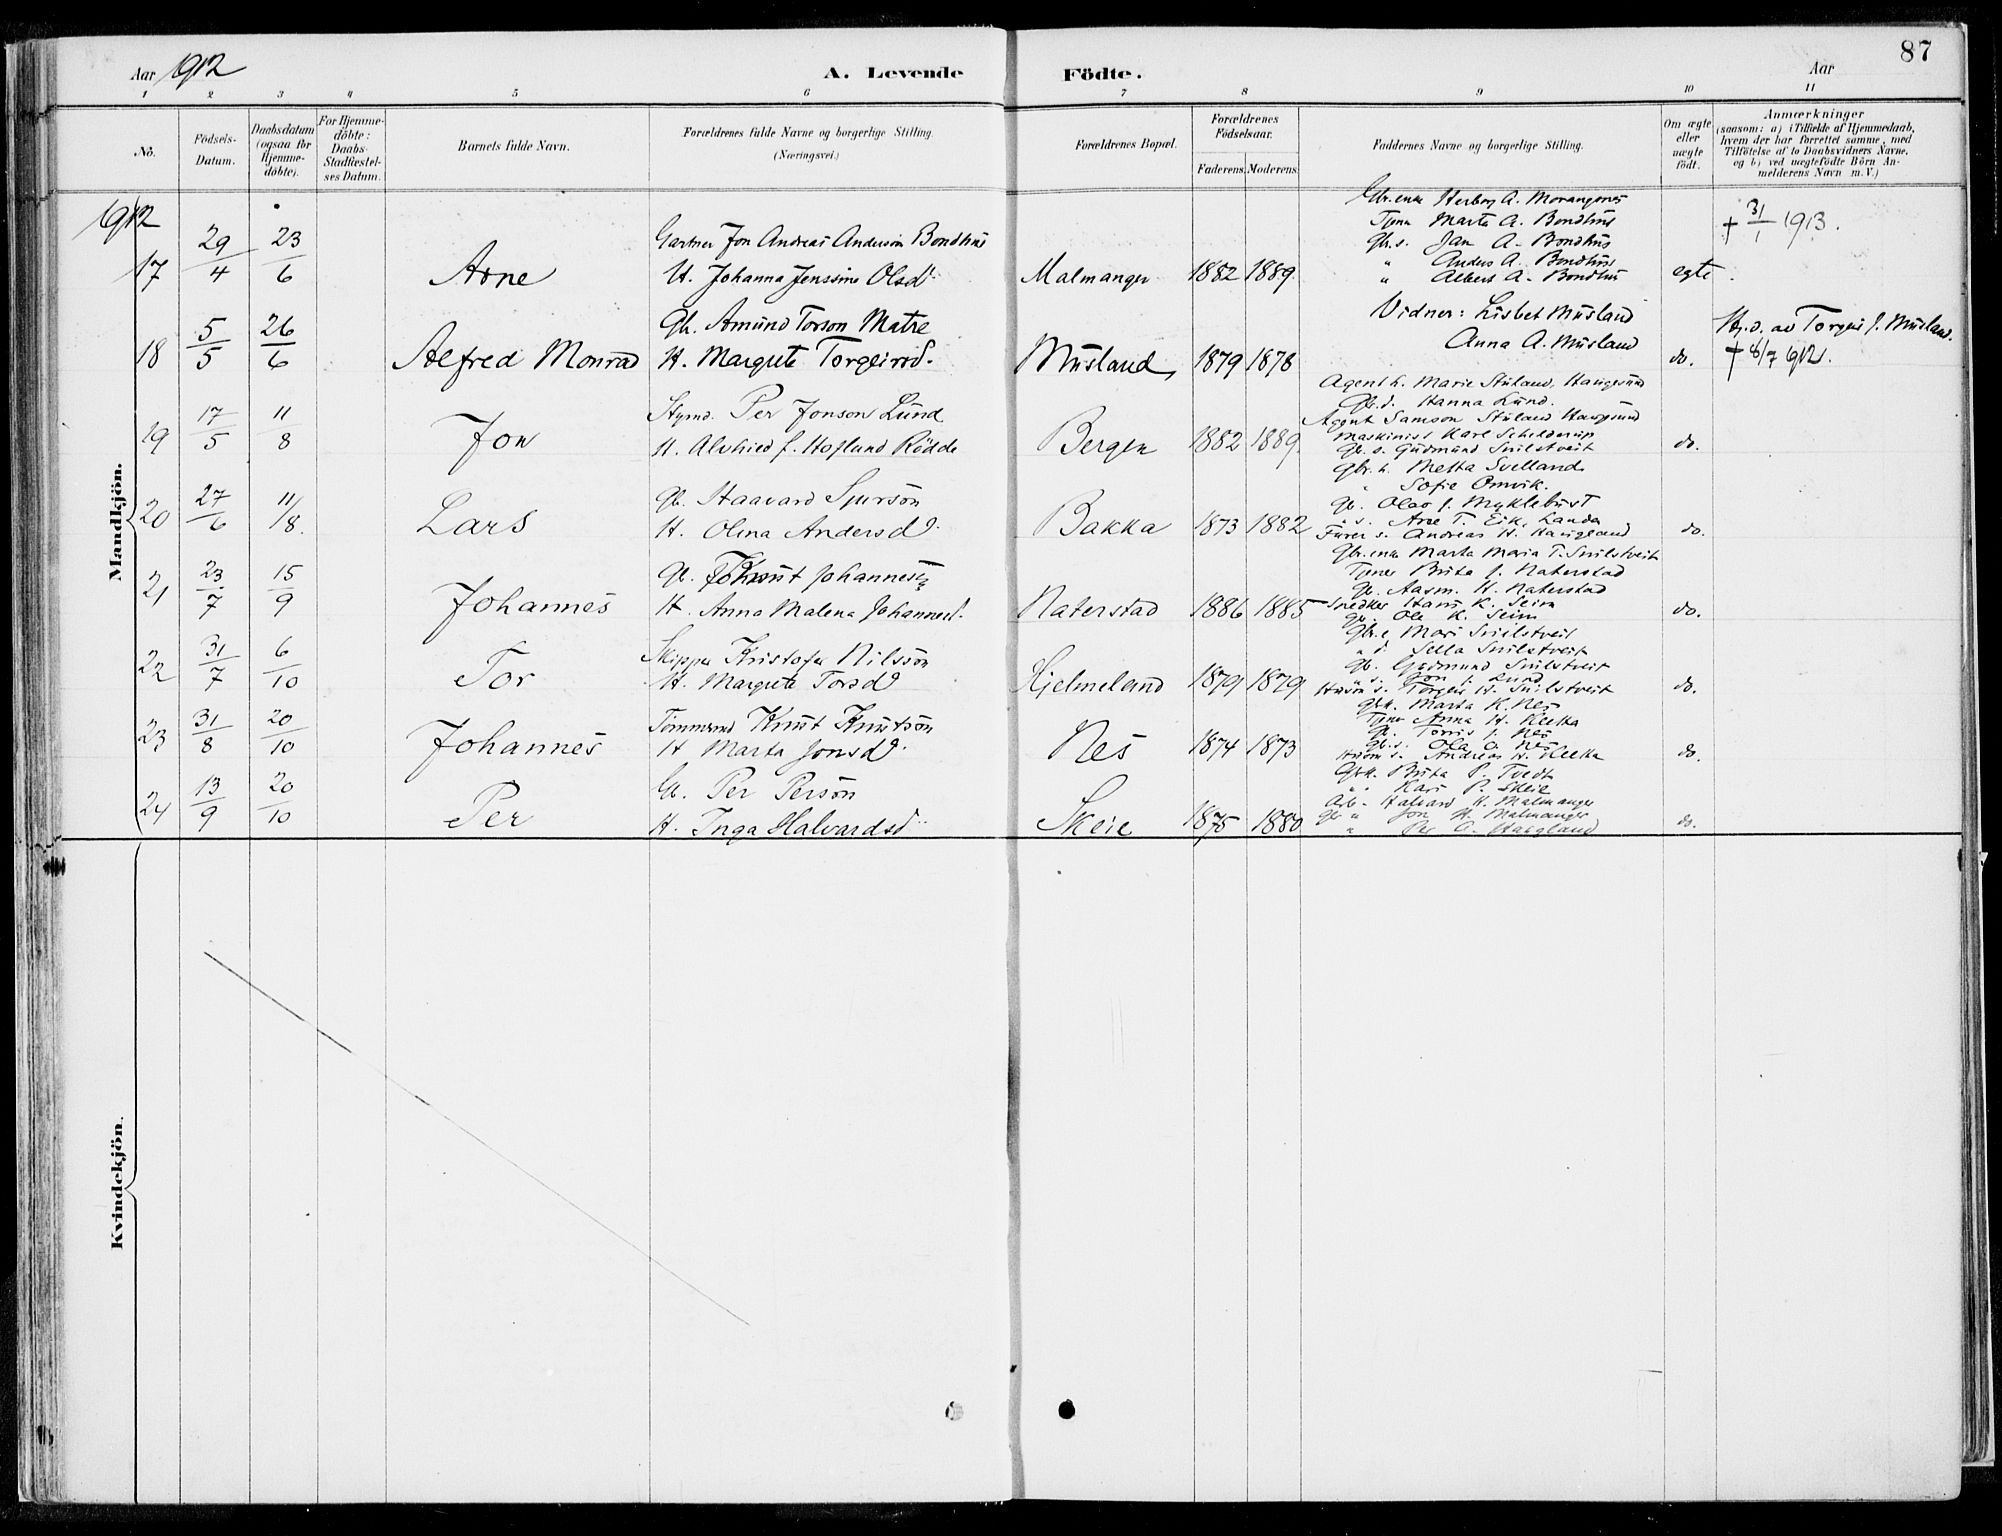 87
Aar 1912
A. Levende Födte.
Aar
1 2 3 4 5 6 7 8 9 10 11
No.
Födsels-Datum.
Daabsdatum (ogsaa for Hjemme-döbte).
For Hjemme-döbte: Daabs-Stadfæstel-ses Datum.
Barnets fulde Navn.
Forældrenes fulde Navne og borgerlige Stilling. (Næringsvei.)
Forældrenes Bopæl.
Forældrenes Födselsaar.
Faderens. Moderens.
Faddernes Navne og borgerlige Stilling.
Om ægte eller uægte födt.
Anmærkninger
(saasom: a) i Tilfælde af Hjemmedaab,
hvem der har forrettet samme, med
Tilföielse af to Daabsvidners Navne,
og b) ved uægtefödte Börn An-
melderens Navn m.V.)
Mandkjön.
1912
17 29/4 23/6 Arne
Gartner Jon Andreas Anderson Bondhus
H. Johanna Jenssine Olsd.
Malmanger 1882 1889
Gbr.enke Herborg A. Morangsnes
Tjene Marta A. Bondhus
Gb.s. Jan A. Bondhus
" Anders A. Bondhus
" Albert A. Bondhus
egte.
+ 31/1 1913.
18 5/5 26/6 Alfred Monrad
Gb. Amund Torson Matre
H. Margrete Torgeirsd.
Musland, 1879 1878
Vidner: Lisbet Musland
Anna A. Musland
do.
Hj.d. av Torgeir J. Musland.
+ 8/7 912.
19 17/5 11/8 Jon
Styrmd. Per Jonson Lund
H. Alvhied J. Hoflund Rödde
Bergen 1882 1889
Agent h. Marie Stuland, Haugesund
Gb.d. Hanna Lund.
Agent Samson Stuland Haugesund
Maskinist Karl Schelderup
Gb. s. Gudmund Snilstveit
do.
20 27/6 11/8. Lars
Gb. Haavard Sjurson
H. Olina Andersd.
Bakka 1873 1882
Gbr. h. Metta Svelland
" Sofie Omvik.
Gb. Olav J. Myklebust
" s. Arne T. Eik, Landa
Furer s. Andreas H. Haugland
do.
21 23/7 15/9 Johannes
Gb. Knut Johannesen
H. Anna Malena Johannesd.
Naterstad 1886 1885
Gbr.enke Marta Maria T. Snilstveit
Tjener Brita J. Naterstad
Gb. Aasm. H. Naterstad
Snedker Hans K. Seim
Gb. Ole K. Seim
do.
22 31/7 6/10 Tor
Skipper Kristofer Nilsson
H. Margreta Torsd.
Hjelmeland 1879 1879
Gbr.e Mari Snilstveit
" d. Sella Snilstveit
Gb. Gudmund Snilstveit
" s. Jon J. Lund
Husm s. Torgeir H. Snilstveit
do.
23 31/8 20/10 Johannes
Tömmermd Knut Knutson
H Marta Jonsd.
Nes 1874 1873
Gbk. Marta K. Nes
Tjene Anna H. Kleka
Gb. Torris J. Nes
Gb.s. Ola O. Nes
Husm s. Andreas H. Kleka
do.
24 13/9 20/10 Per
Gb. Per Person
H. Inga Halvardsd.
Skeie 1875 1880
Gbk. Brita P. Tvedt
" Kari P. Skeie
Arb. Halvard H. Malmanger
Gb " Jon H. Malmanger
" Per O. Haugland
do.
Kvindekjön.